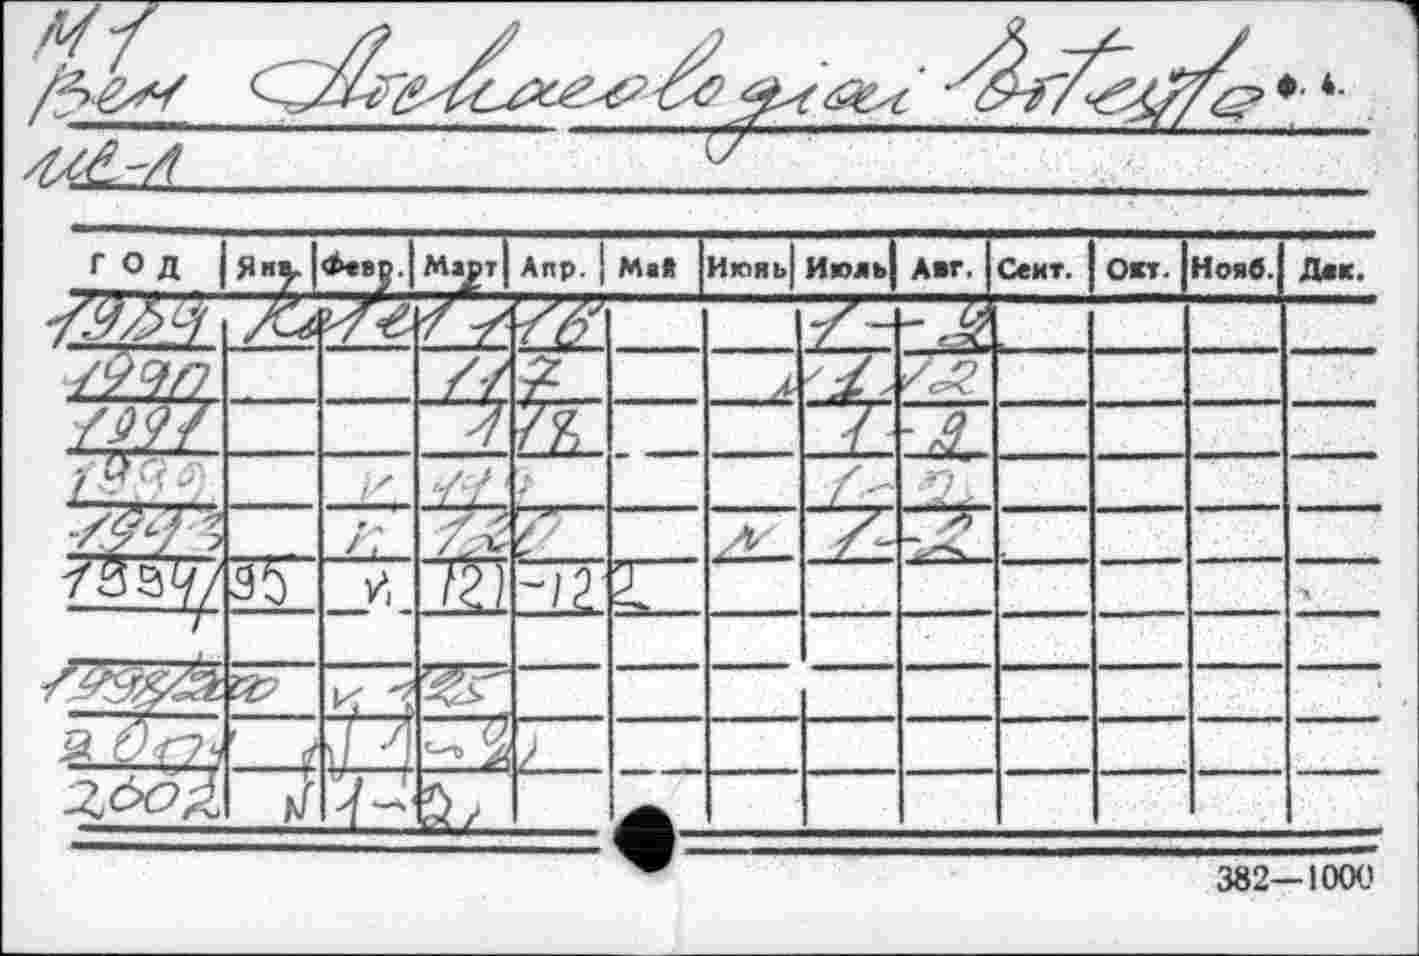 М 1
Вен Archaeologiai Értesítő...
ме-л
ГОД Янв. Февр. Март Апр. Май Июнь Июль Авг. Сент. Окт. Нояб. Дек.
1989 Kötet 116 1-2
1990 117 N 1, 2
1991 118 1-2
1992 к. 119 1-2
1993 к. 120 N 1-2
1994/95 к. 121-122
1998/2000 к. 125
2001 N 1-2,
2002 N 1-2,
382—1000